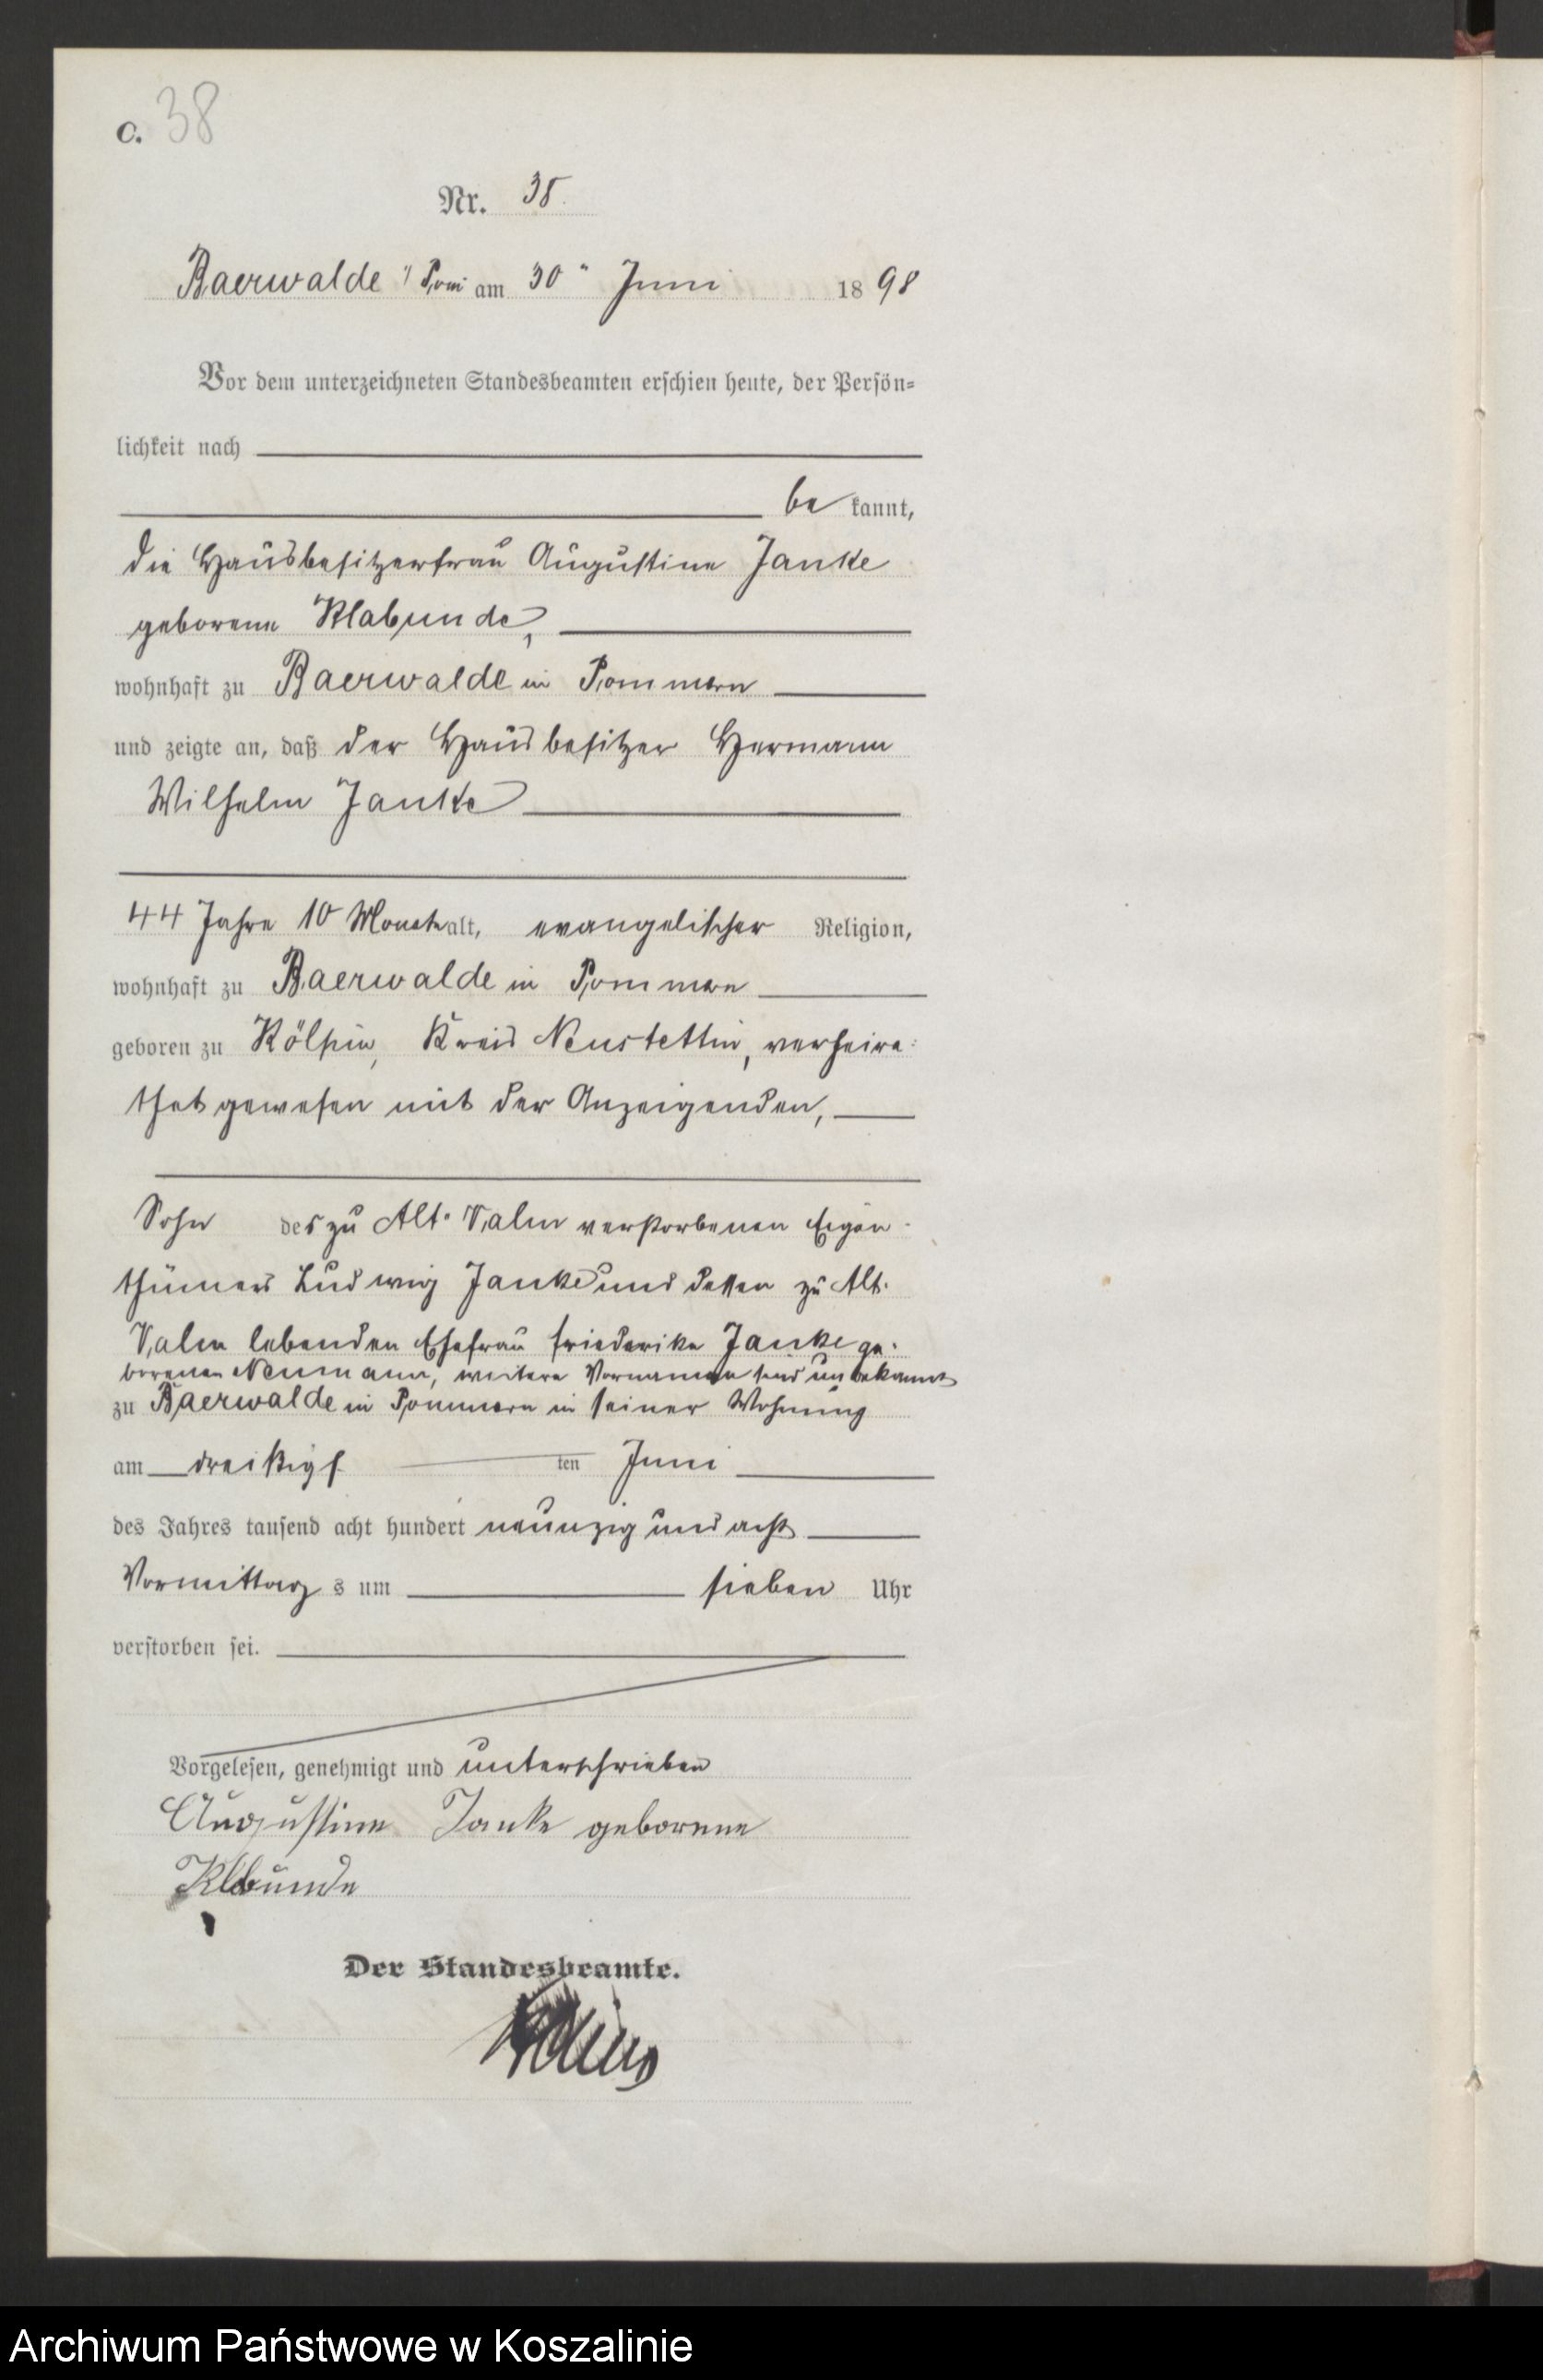 C. 38
Nr. 38.
Baerwalde i/Pom am 30ten Juni 1898
Vor dem unterzeichneten Standesbeamten erschien heute, der Persön=
lichkeit nach
be kannt,
die Hausbesitzerfrau Augustine Janke
geborene Klabunde,
wohnhaft zu Baerwalde in Pommern
und zeigte an, daß der Hausbesitzer Hermann
Wilhelm Janke
44 Jahre 10 Monate alt, evangelischer Religion,
wohnhaft zu Baerwalde in Pommern
geboren zu Kölpin, Kreis Neustettin, verheira=
thet gewesen mit der Anzeigenden,
Sohn des zu Alt-Valm verstorbenen Eigen-
thümers Ludwig Janke und dessen zu Alt-
Valm lebenden Ehefrau Friederike Janke ge-
borenen Neumann, weitere Vornamen sind unbekannt
zu Baerwalde in Pommern in seiner Wohnung
am dreißigs ten Juni
des Jahres tausend acht hundert neunzig und acht
Vormittag s um sieben Uhr
verstorben sei.
Vorgelesen, genehmigt und unterschrieben
Augustine Janke geborene
Klbunde
Der Standesbeamte.
Archiwum Państwowe w Koszalinie